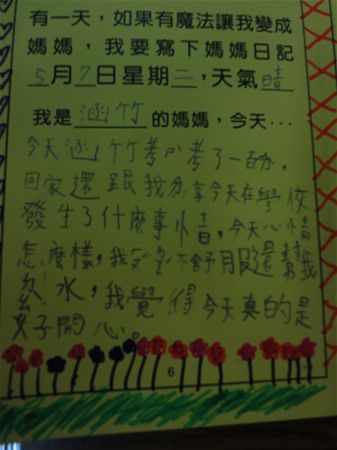 有一天，如果有魔法讓我變成
媽媽，我要寫下媽媽日記
5月7日星期二，天氣晴
我是涵竹的媽媽，今天…
今天涵竹考八考了一百分，
回家還跟我分享今天在學校
發生了什麼事情，今天心情
怎麼樣，我不舒服還幫我
水，我覺得今天真的是
好開心。
6